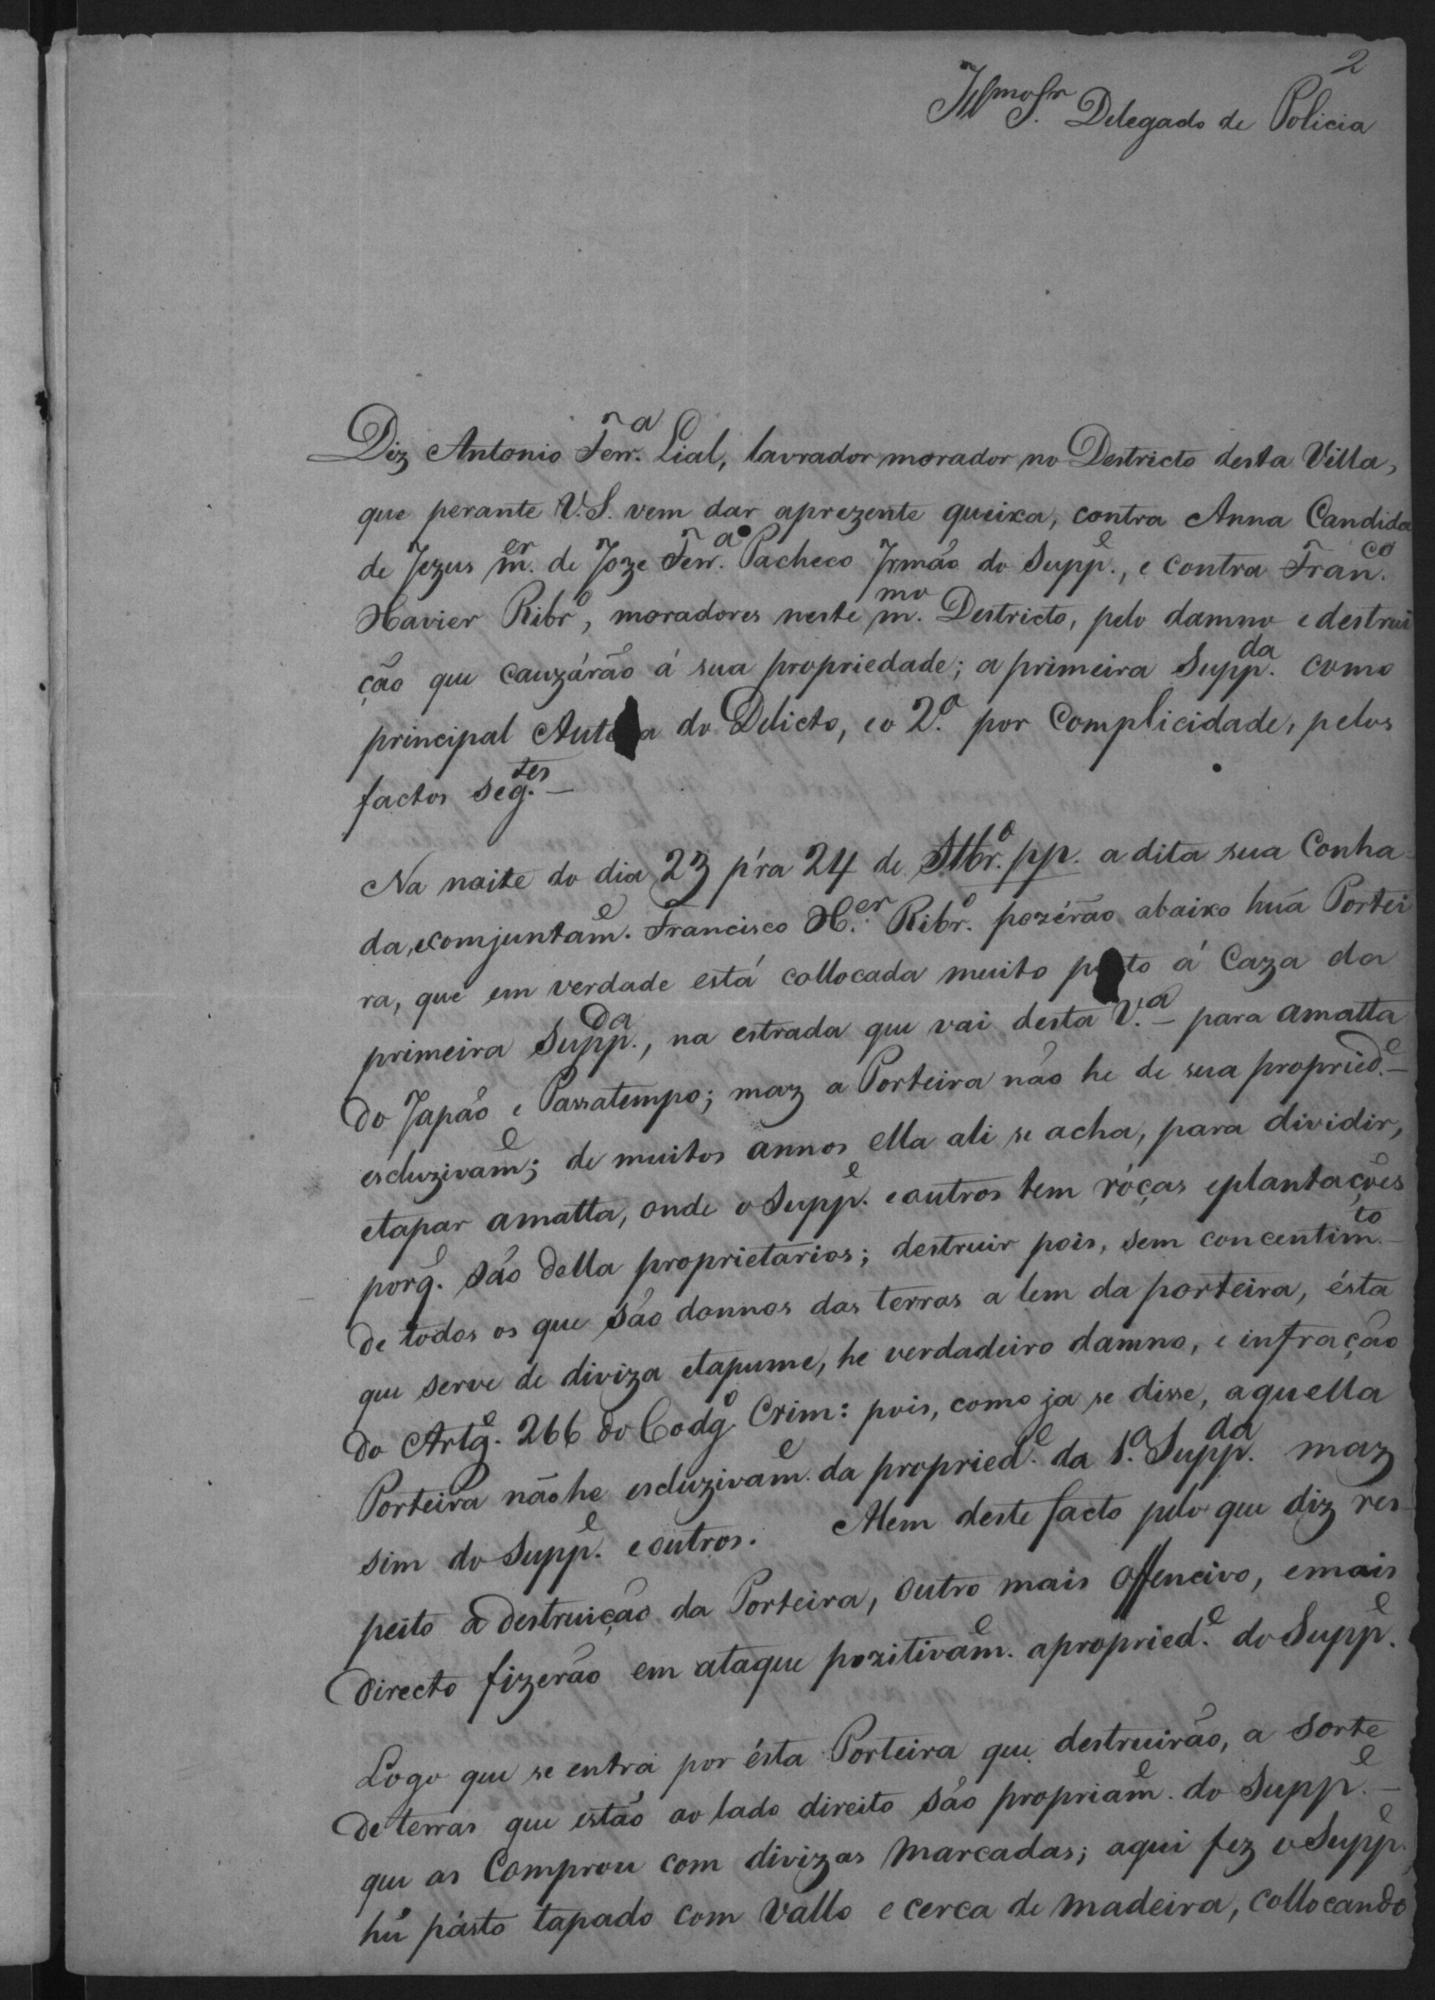 2
Illmo Sr. Delegado de Policia
Diz Antonio Ferr.ª Lial, lavrador morador no Destricto desta Villa,
que perante V. S. vem dar aprezente queixa, contra Anna Candida
de Jezus m.er de Joze Ferr.ª Pacheco Irmão do Supp.e, e contra Fran.co
Xavier Ribr.o, moradores neste m.mo Destricto, pelo damno e destrui
ção que cauzárão á sua propriedade; a primeira Supp.da como
principal Autora do Delicto, e o 2.º por Complicidade, pelos
factos seg.tes —
Na noite do dia 23 p'ra 24 de Stbr.o pp. a dita sua Conha-
da, e comjuntam.e Francisco X.er Ribr.o pozérão abaixo huã Portei
ra, que em verdade está collocada muito p to á Caza da
primeira Supp.da, na estrada que vai desta V.ª — para amatta
do Japão e Passatempo; maz a Porteira não he de sua propried.e —
escluzivam.e; de muitos annos ella ali se acha, para dividir,
etapar amatta, onde o Supp.e e outros tem róças eplantações
porq. são della proprietarios; destruir pois, sem concentim.to —
de todos os que são donnos das terras a lem da porteira, ésta
que serve de diviza etapume, he verdadeiro damno, e infração
do Artg.o 266 do Codg.o Crim: pois, como ja se disse, aquella
Porteira não he escluzivam.e da propried.e da 1.ª Supp.da maz
sim do Supp.e e outros. Alem deste facto pelo que diz res-
peito a destruição da Porteira, outro mais offencivo, emais
directo fizerão em ataque pozitivam.e apropried.e do Supp.e
Logo que se entra por ésta Porteira que destruirão, a sorte
de terras que estão ao lado direito são propriam.e do Supp.e —
que as Comprou com divizas marcadas; aqui fez o Supp.e
hũ pásto tapado com vallo e cerca de madeira, collocando